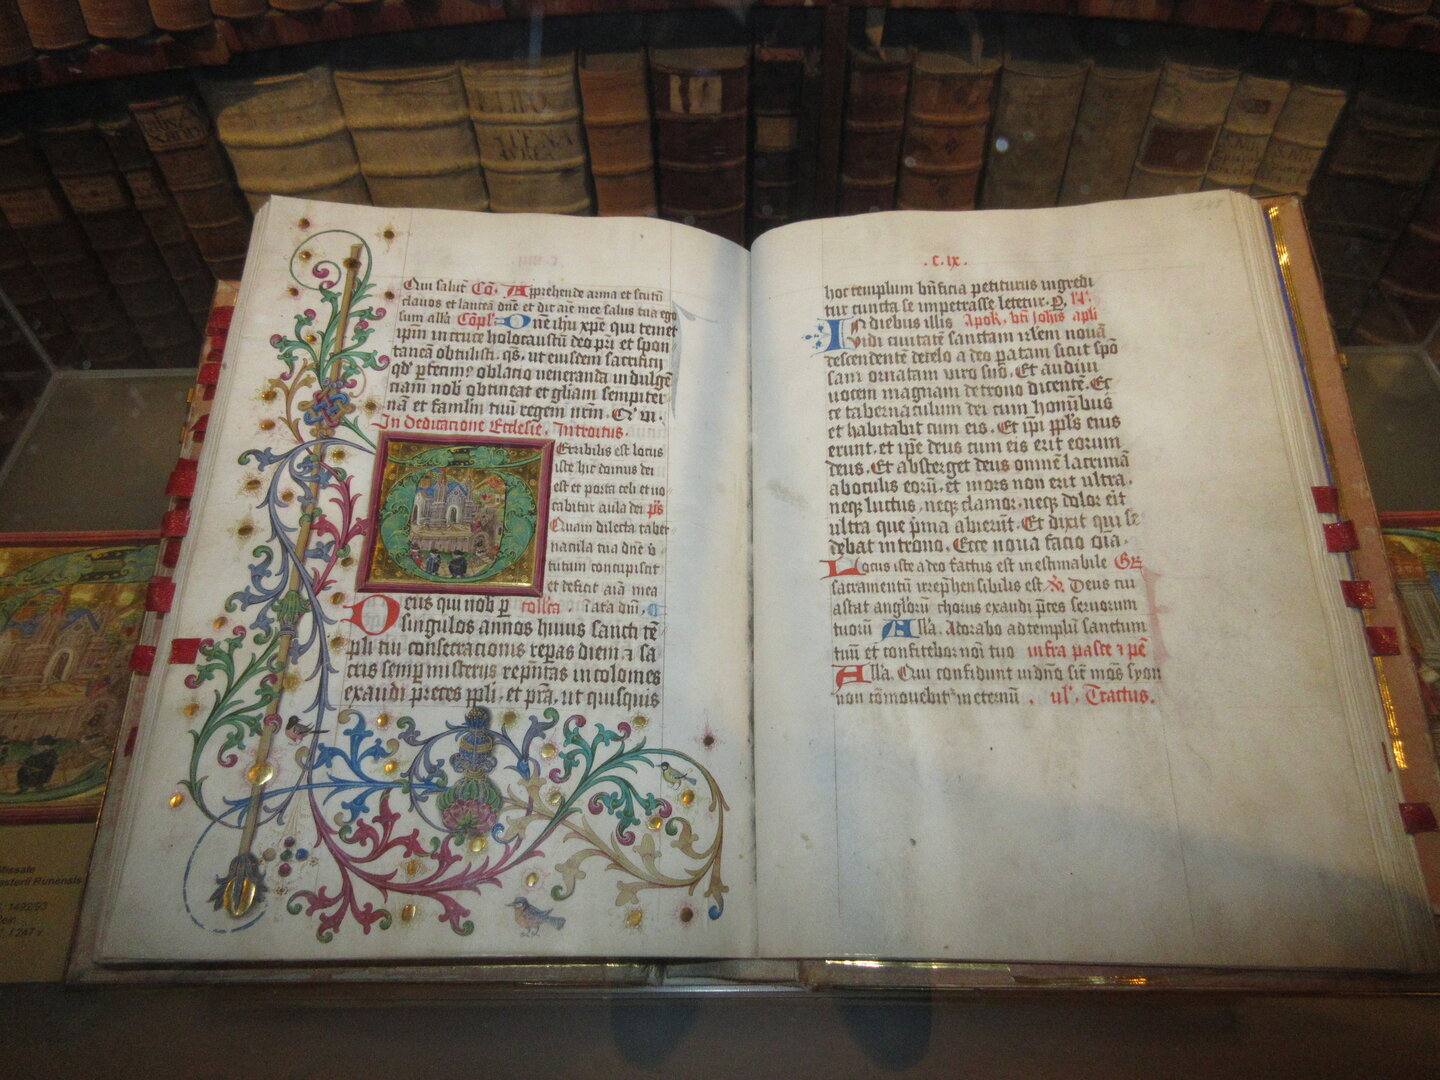 Qui salut Cō. Apprehende arma et scutū
clavos et lanceā dn̄e et dic aīe mee salus tua ego
sum all'a Cōpl' Dn̄e ihu xp̄e qui temet
ip̄m in cruce holocaustū deo pr̄i et spon
taneā obtulisti . qs̄ , ut eiusdem sacrificij
oblatio veneranda indulgē
ciam nob obtineat et gl̄iam sempiter
nā et famlm̄ tuū regem nr̄m .
In Dedicacione Ecclesie . Introitus .
Terribilis est locus
iste hic domus dei
est et porta celi et vo
cabitur aula dei p̄s
Quam dilecta taber
nacula tua dn̄e v̄
tutum concupiscit
et deficit aīa mea
Deus qui nob p̄ coll'ca
singulos annos huius sancti tē
pli tui consecracionis repas diem ⁊ sa
cris semp̄ misterijs rep̄ntas incolomes
exaudi preces pp̄li . et p̄ra , ut quisquis
. c . ix .
248
hoc templum bn̄ficia petiturus ingredi
tur cuncta se impetrasse letetur . p̄ .
In diebus illis Apok . bt̄i Joh̄is apl̄i
Vidi civitatē sanctam irl̄em nouā
descendentē de celo a deo paratam sicut spō
sam ornatam viro suo . Et audiui
vocem magnam de trono dicentē . Ec
ce tabernaculum dei cum hominibus
et habitabit cum eis . Et ip̄i pp̄ls eius
erunt . et ip̄e deus cum eis erit eorum
deus . Et absterget deus omnē lacrimā
ab oculis eorū , et mors non erit ultra ,
neq̄ luctus , neq̄ clamor , neq̄ dolor erit
ultra que p̄ma abierūt . Et dixit qui se
debat in trono . Ecce noua facio oīa .
Locus iste a deo factus est inestimabile Gr̄
sacramentū irrep̄hensibilis est ℣ Deus cui
astat angl̄orū chorus exaudi p̄ces seruorum
tuorū All'a . Adorabo ad templū sanctum
tuū et confitebor noī tuo infra pasce ⁊ pē
All'a . Qui confidunt in dn̄o sic̄ mōs syon
non cōmouebit' in eternū . ul' Tractus .
Missale
Runensis
1492/93
f. 247 v